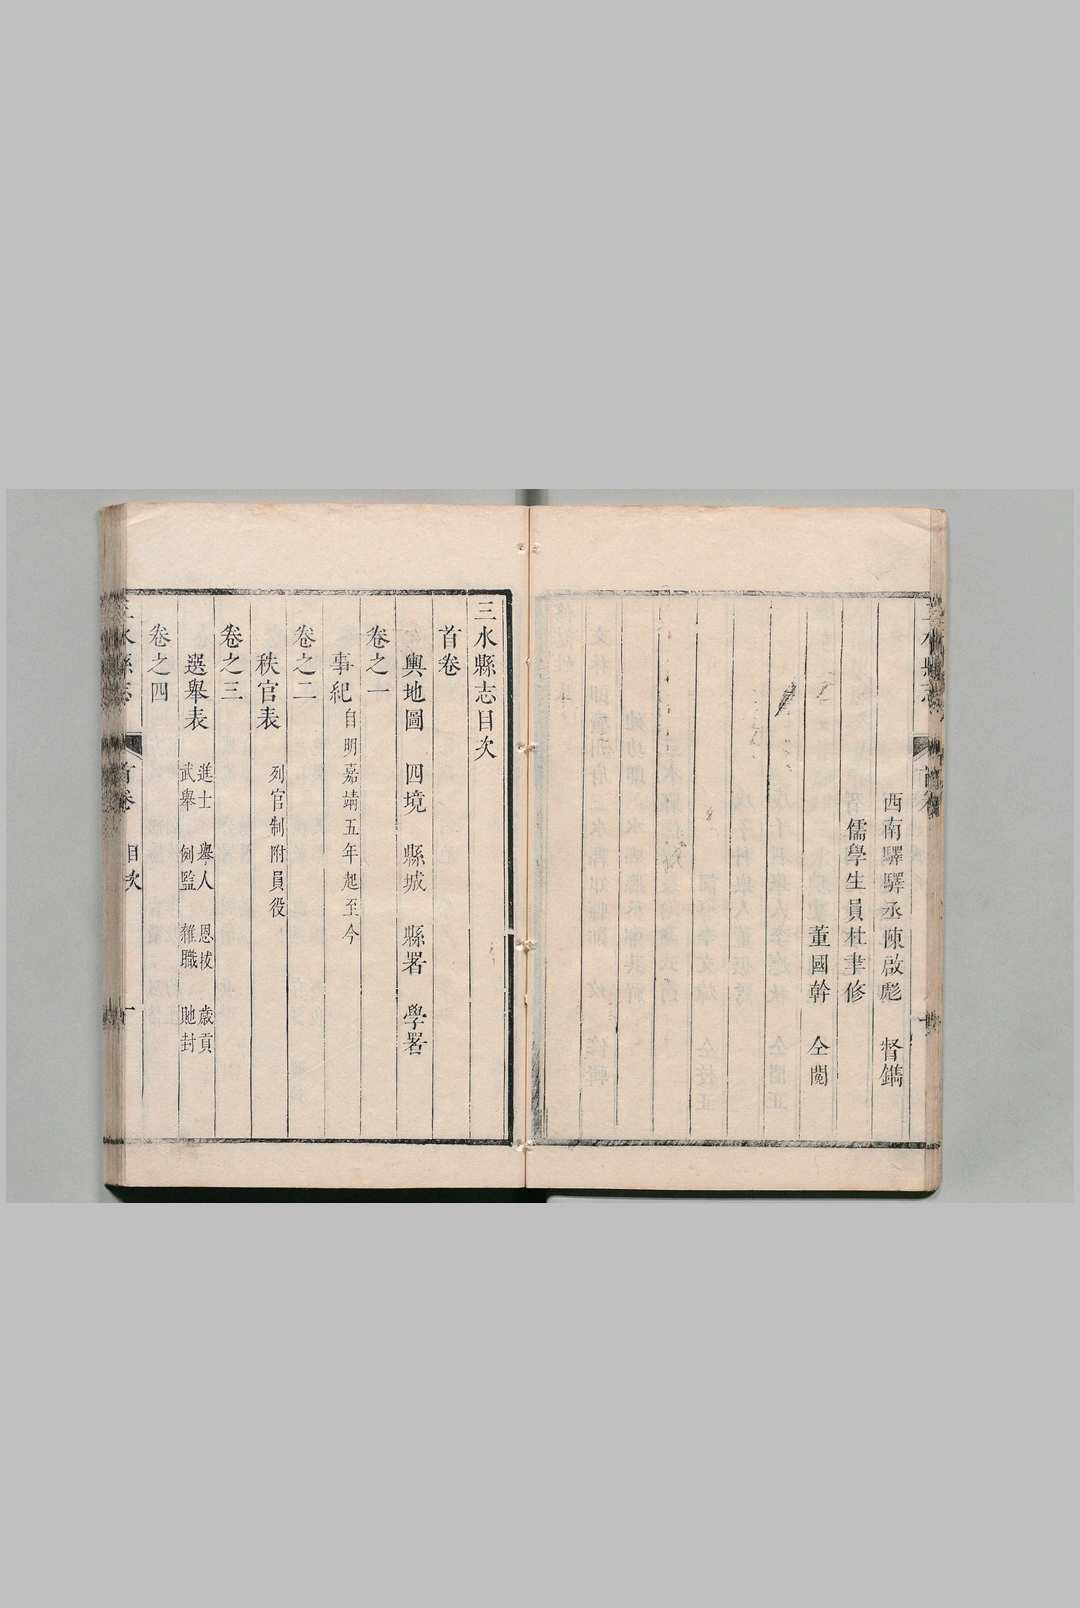 西南驛驛丞陳啟彪　督鐫
儒學生員杜聿修
董國幹　仝閱
三水縣志目次
首卷
輿地圖　四境　縣城　縣署　學署
卷之一
事紀　自明嘉靖五年起至今
卷之二
秩官表　列官制附員役
卷之三
選舉表　進士　舉人　恩拔　歲貢
武舉　例監　雜職　貤封
卷之四
三水縣志　首卷　目次　一